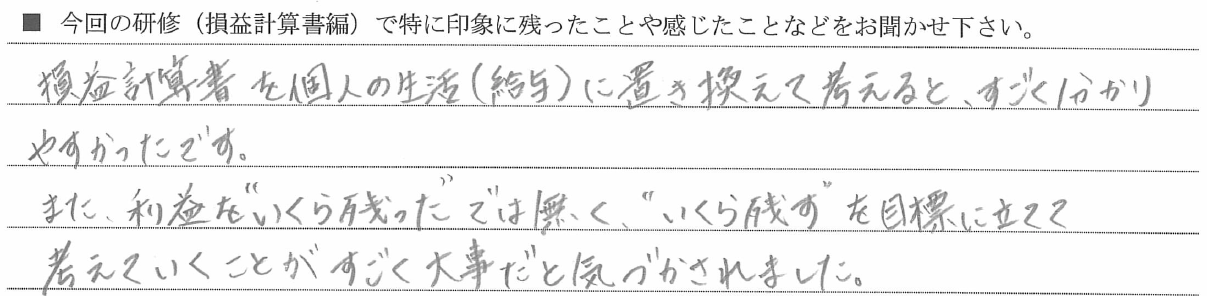 ■ 今回の研修（損益計算書編）で特に印象に残ったことや感じたことなどをお聞かせ下さい。
損益計算書を個人の生活（給与）に置き換えて考えると、すごく分かり
やすかったです。
また、利益を“いくら残った”では無く、“いくら残す”を目標に立てて
考えていくことがすごく大事だと気づかされました。